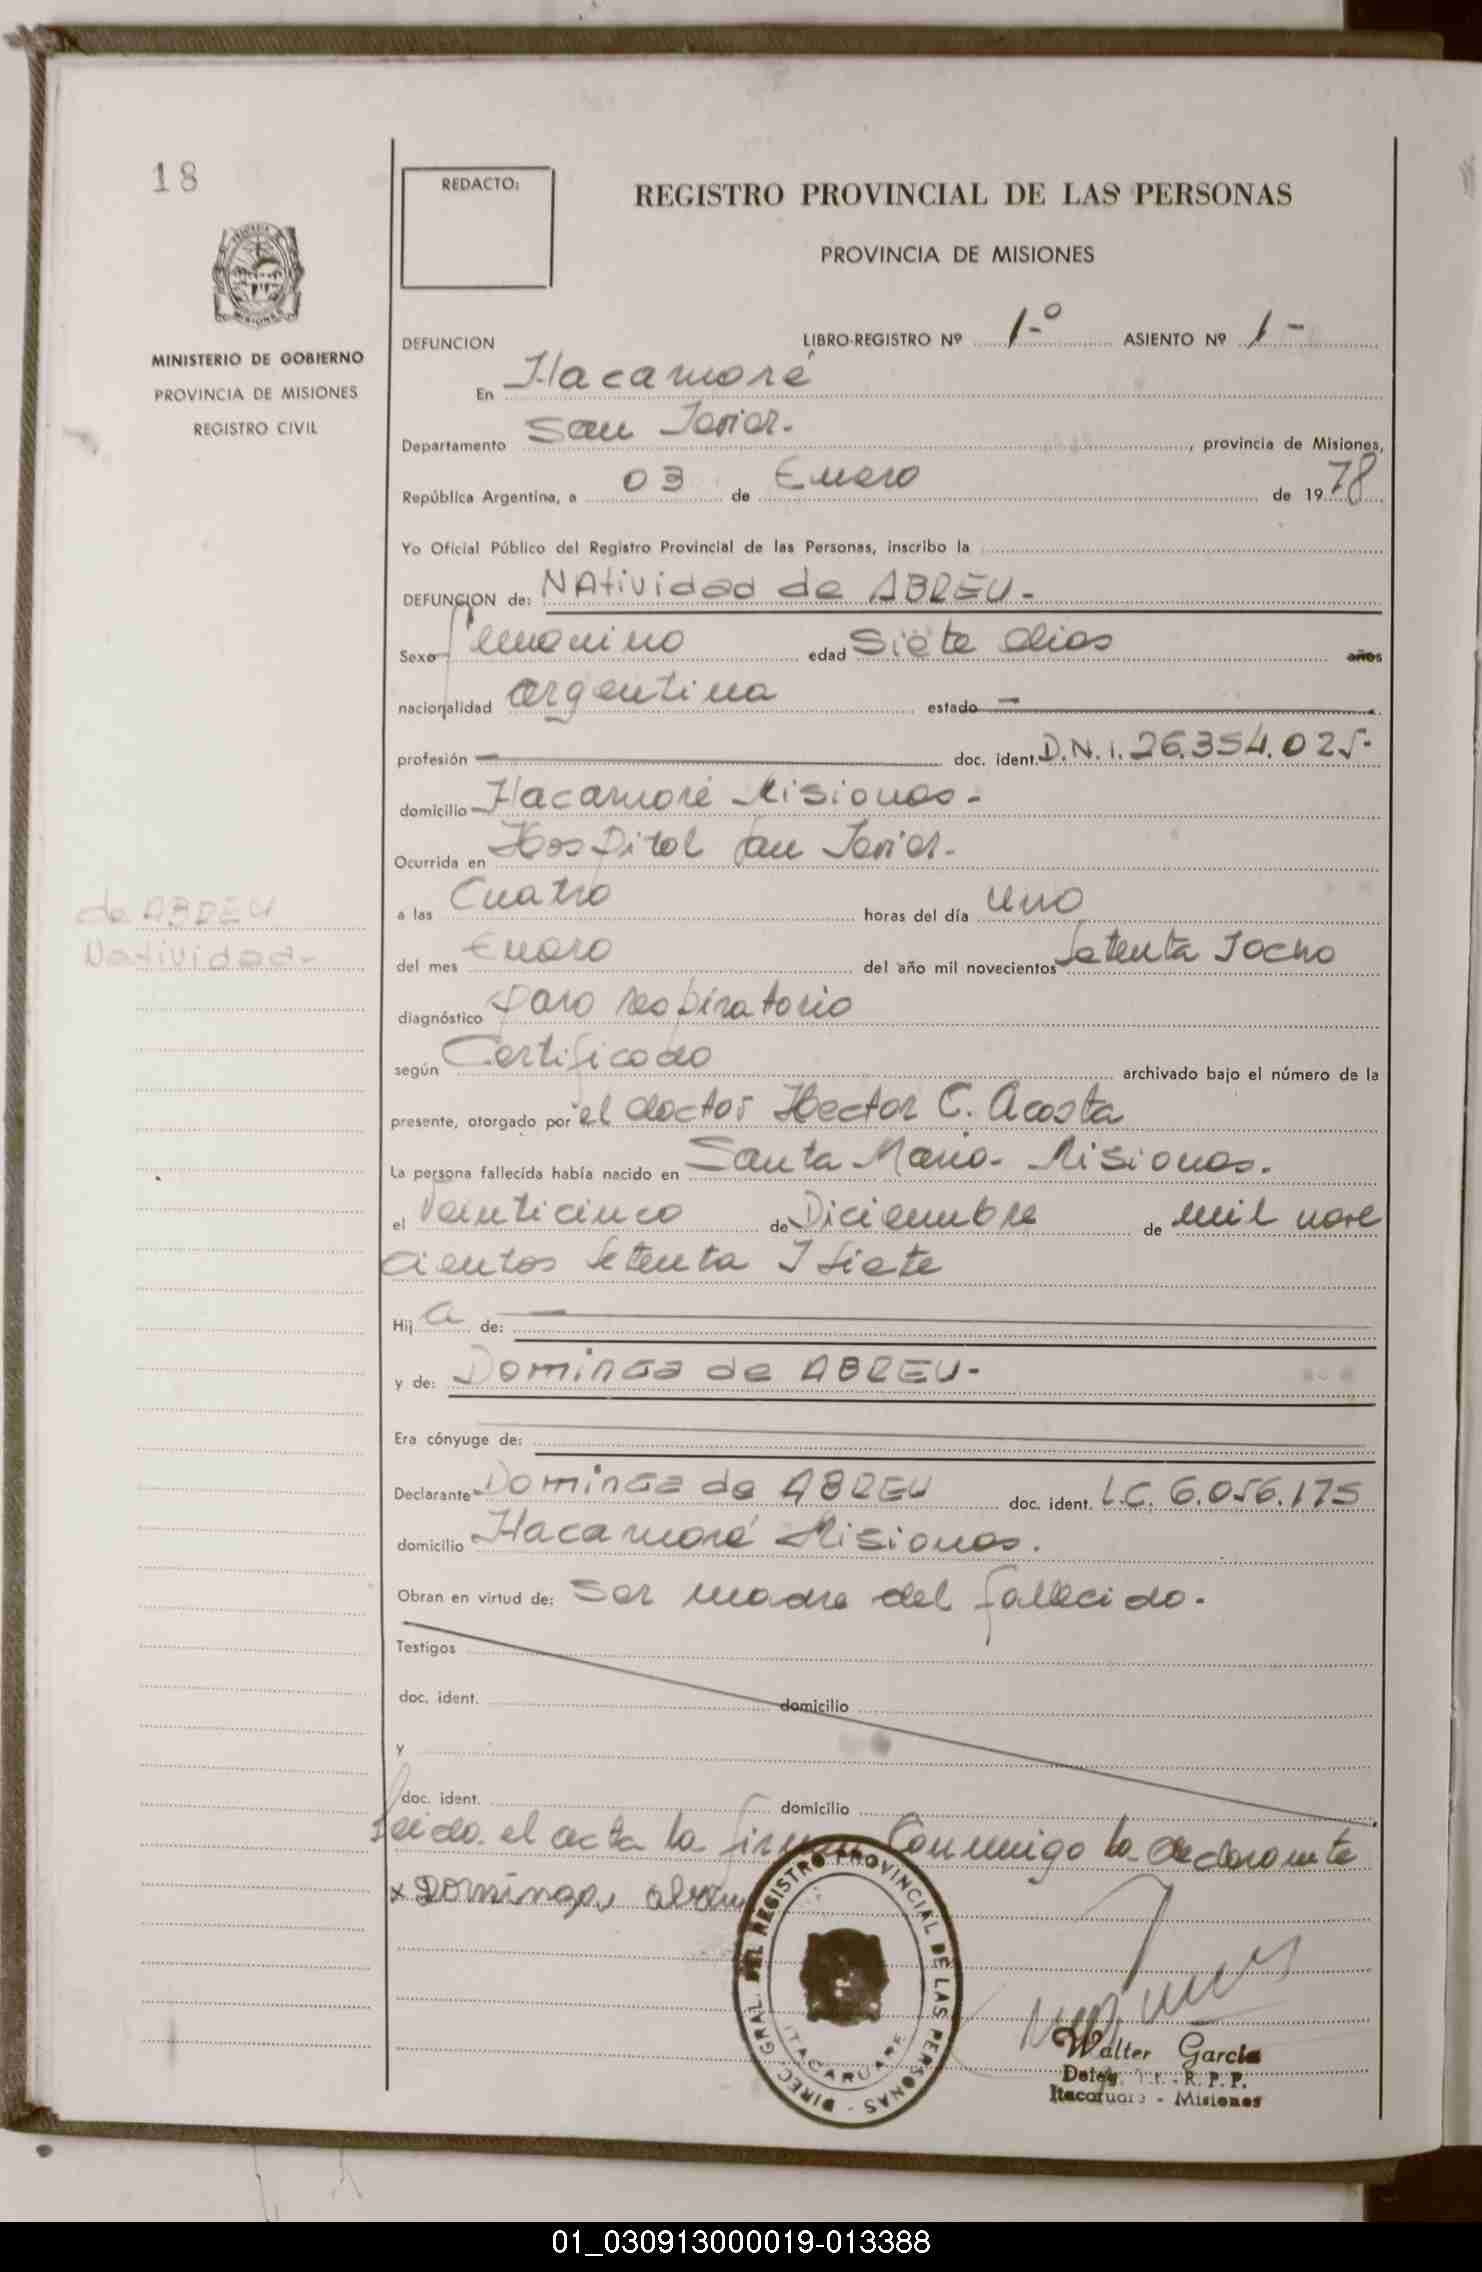 18
REDACTO:
REGISTRO PROVINCIAL DE LAS PERSONAS
PROVINCIA DE MISIONES
MINISTERIO DE GOBIERNO
PROVINCIA DE MISIONES
REGISTRO CIVIL
DEFUNCION LIBRO-REGISTRO Nº 1-º ASIENTO Nº 1-
En Itacaruaré
Departamento San Javier.-, provincia de Misiones,
República Argentina, a 03 de Enero de 1978
Yo Oficial Público del Registro Provincial de las Personas, inscribo la
DEFUNCION de: NAtividad de ABREU-
Sexo femenino edad Siete dias años
nacionalidad argentina estado —
profesión — doc. ident. D.N.i. 26.354.025-
domicilio Itacaruaré Misiones-
Ocurrida en Hospital San Javier-
a las Cuatro horas del día uno
de ABREU
Natividad-
del mes Enero del año mil novecientos Setenta Iocho
diagnóstico paro respiratorio
según Certificado archivado bajo el número de la
presente, otorgado por el doctor Hector C. Acosta
La persona fallecida había nacido en Santa Maria- Misiones.
el Veinticinco de Diciembre de mil nove
cientos Setenta I Siete
Hij a de: —
y de: Dominga de ABREU-
Era cónyuge de:
Declarante Dominga de ABREU doc. ident. L.C. 6.056.175
domicilio Itacaruaré Misiones.
Obran en virtud de: Ser madre del fallecido.
Testigos
doc. ident. domicilio
y
doc. ident. domicilio
Leida el acta la firma Conmigo la declarante
x Dominga
DIREC. GRAL. DEL REGISTRO PROVINCIAL DE LAS PERSONAS -
ITACARUARE
Walter Garcia
Deleg. - R. P. P.
Itacaruaré - Misiones
01_030913000019-013388